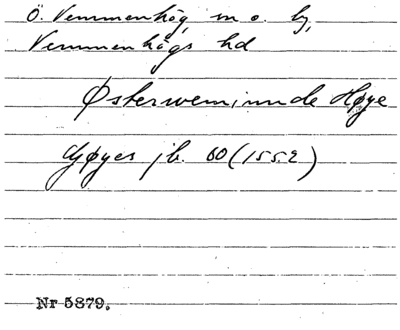 Ö. Vemmenhög sn o. by,
Vemmenhögs hd
Østerwemminnde Høye
Gøyes jb. 60 (1552)
Nr 5879.